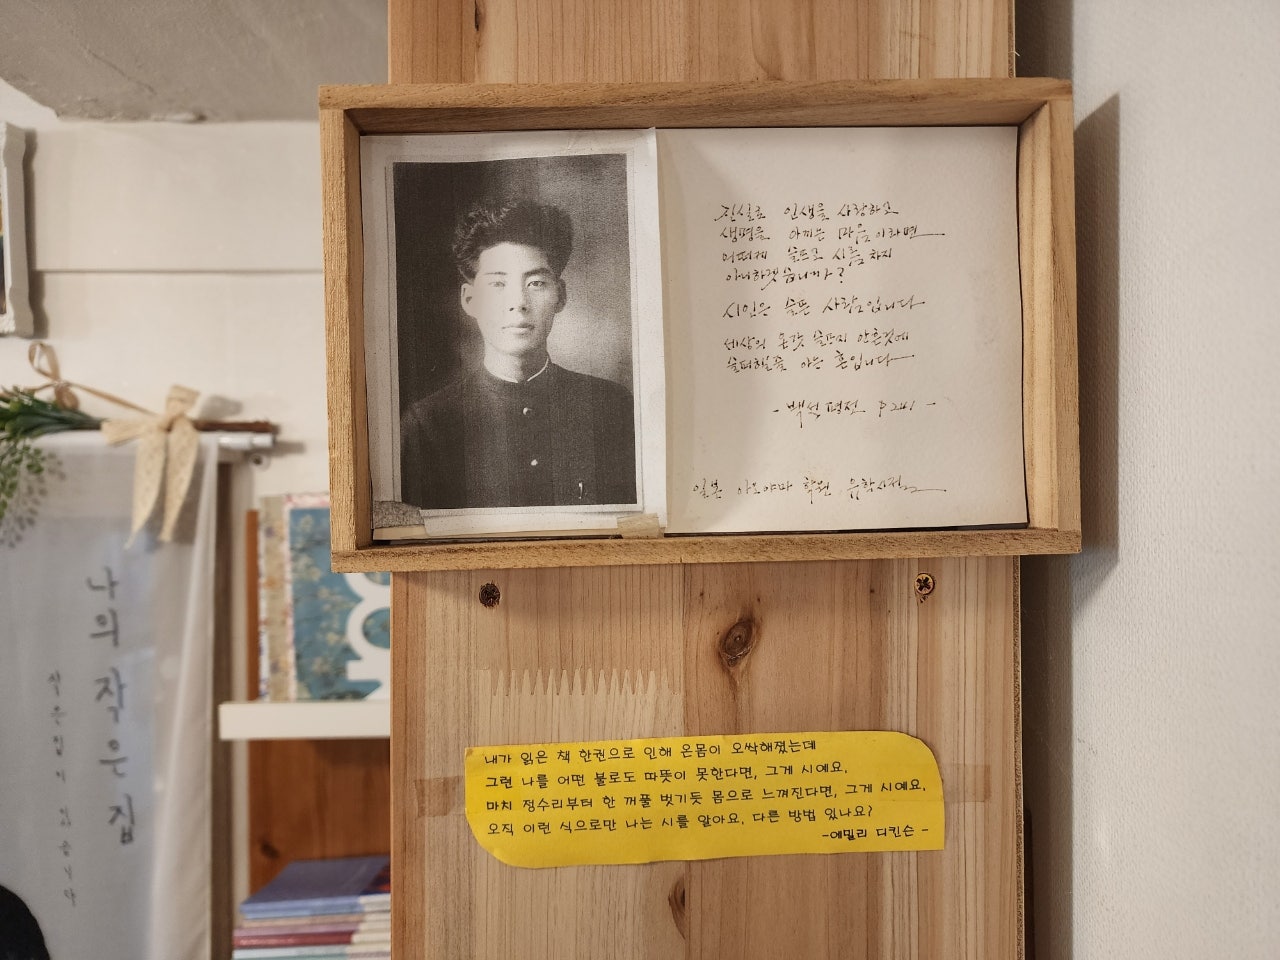 진실로 인생을 사랑하고
생명을 아끼는 마음이라면
어떠케 슬프고 시름차지
아니하겟습니까?
시인은 슬픈 사람입니다
세상의 온갖 슬프지 안흔것에
슬퍼할줄 아는 혼입니다
- 백석 평전 P 241 -
일본 아오야마 학원 유학시절
나의 작은 집
작은집이 있습니다
내가 읽은 책 한권으로 인해 온몸이 오싹해졌는데
그런 나를 어떤 불로도 따뜻이 못한다면, 그게 시예요.
마치 정수리부터 한 꺼풀 벗기듯 몸으로 느껴진다면, 그게 시예요.
오직 이런 식으로만 나는 시를 알아요. 다른 방법 있나요?
-에밀리 디킨슨 -